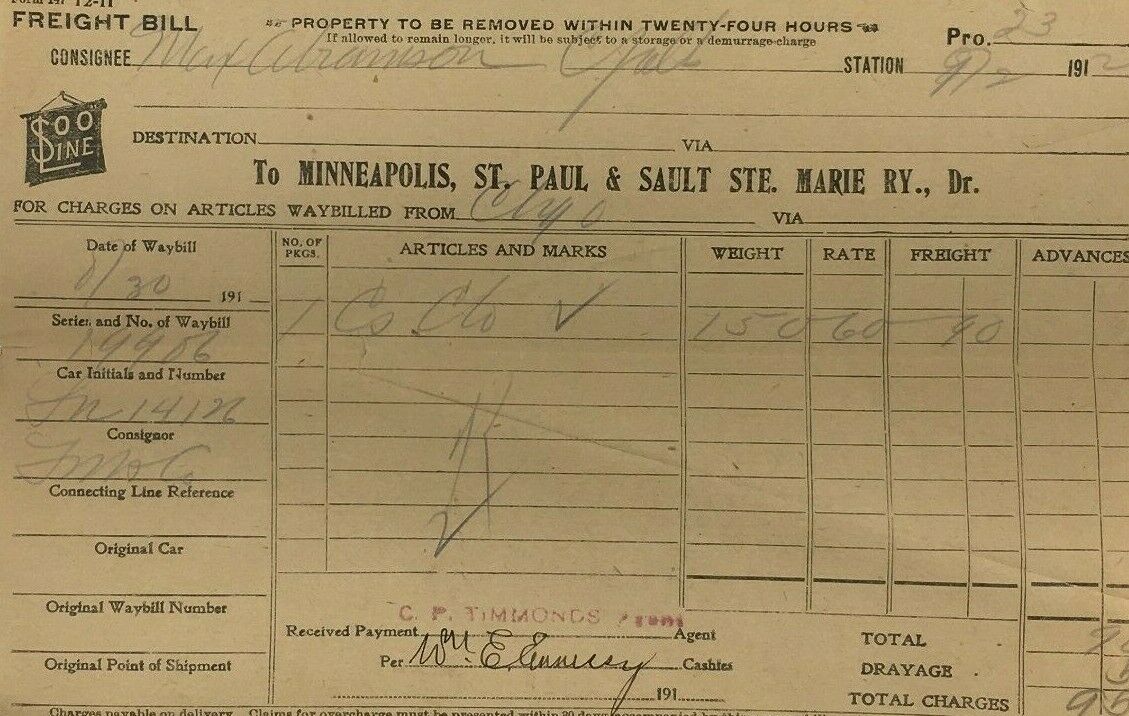 Form 147 12-11
FREIGHT BILL
PROPERTY TO BE REMOVED WITHIN TWENTY-FOUR HOURS
If allowed to remain longer, it will be subject to a storage or a demurrage-charge
Pro. 23
CONSIGNEE Max Abramson STATION 9/2 1912
SOO LINE
DESTINATION VIA
To MINNEAPOLIS, ST. PAUL & SAULT STE. MARIE RY., Dr.
FOR CHARGES ON ARTICLES WAYBILLED FROM Chgo VIA
Date of Waybill
8/30 191
Series and No. of Waybill
19906
Car Initials and Number
14126
Consignor
Connecting Line Reference
Original Car
Original Waybill Number
Original Point of Shipment
NO. OF PKGS. ARTICLES AND MARKS WEIGHT RATE FREIGHT ADVANCES
1 Cs Clo 150 60 90
C. P. TIMMONDS Agent
Received Payment Agent
Per Wm E Hennessy Cashier
191
TOTAL
DRAYAGE
TOTAL CHARGES
Charges payable on delivery. Claims for overcharge must be presented within 30 days accompanied by this